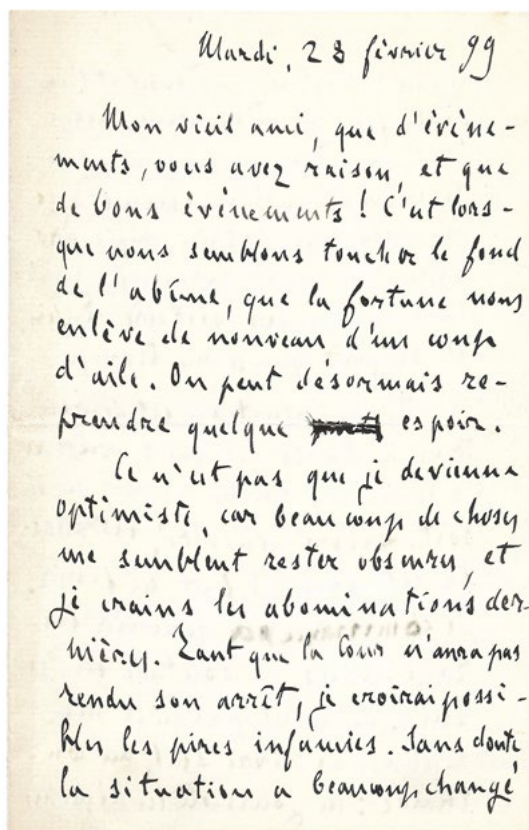 Mardi, 28 février 99
Mon vieil ami, que d'évène-
ments, vous avez raison, et que
de bons évènements ! C'est lors-
que nous semblons toucher le fond
de l'abîme, que la fortune nous
enlève de nouveau d'un coup
d'aile. On peut désormais re-
prendre quelque espoir.
Ce n'est pas que je devienne
optimiste, car beaucoup de choses
me semblent rester obscures, et
je crains les abominations der-
nières. Tant que la Cour n'aura pas
rendu son arrêt, je croirai possi-
bles les pires infamies. Sans doute
la situation a beaucoup changé